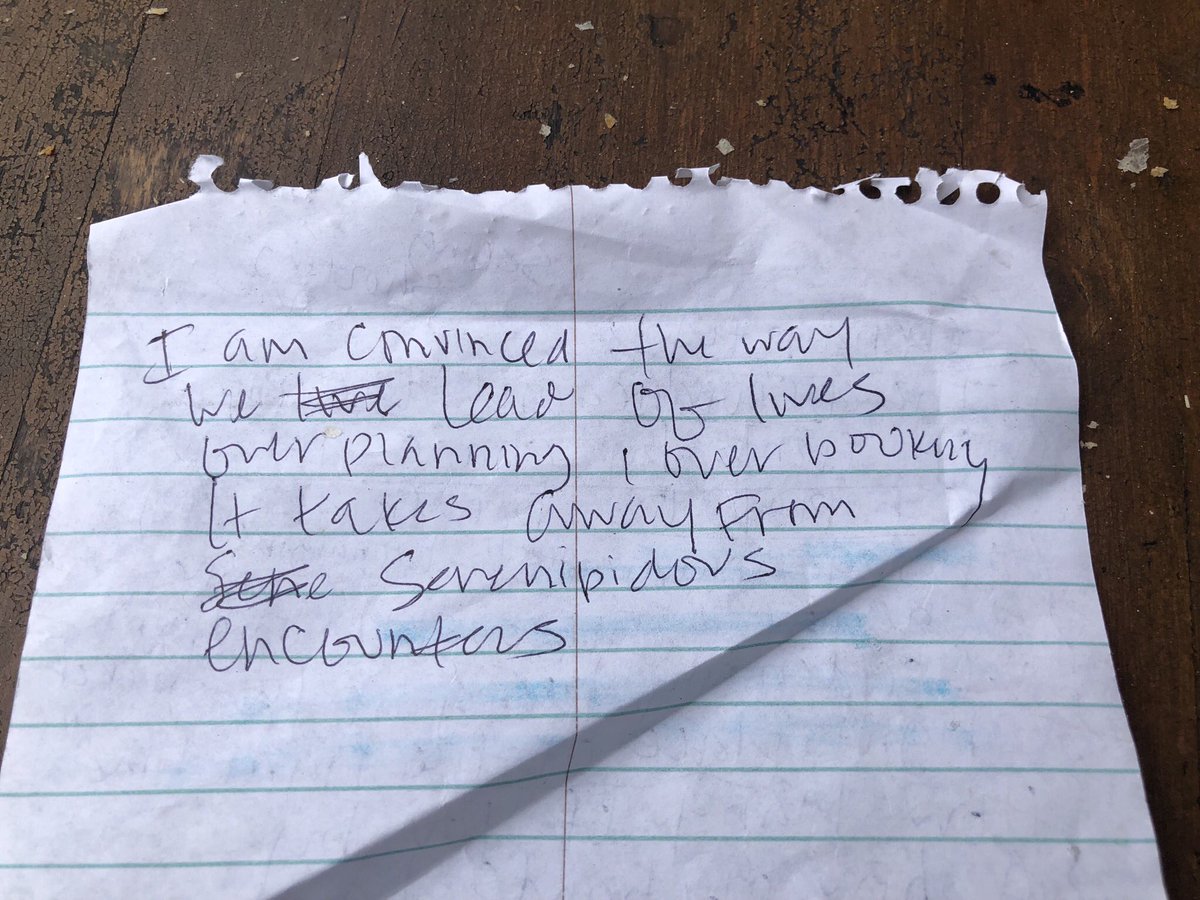 I am convinced the way
we lead or lives
over planning, over booking
It takes away from
Serenipidors
encounters